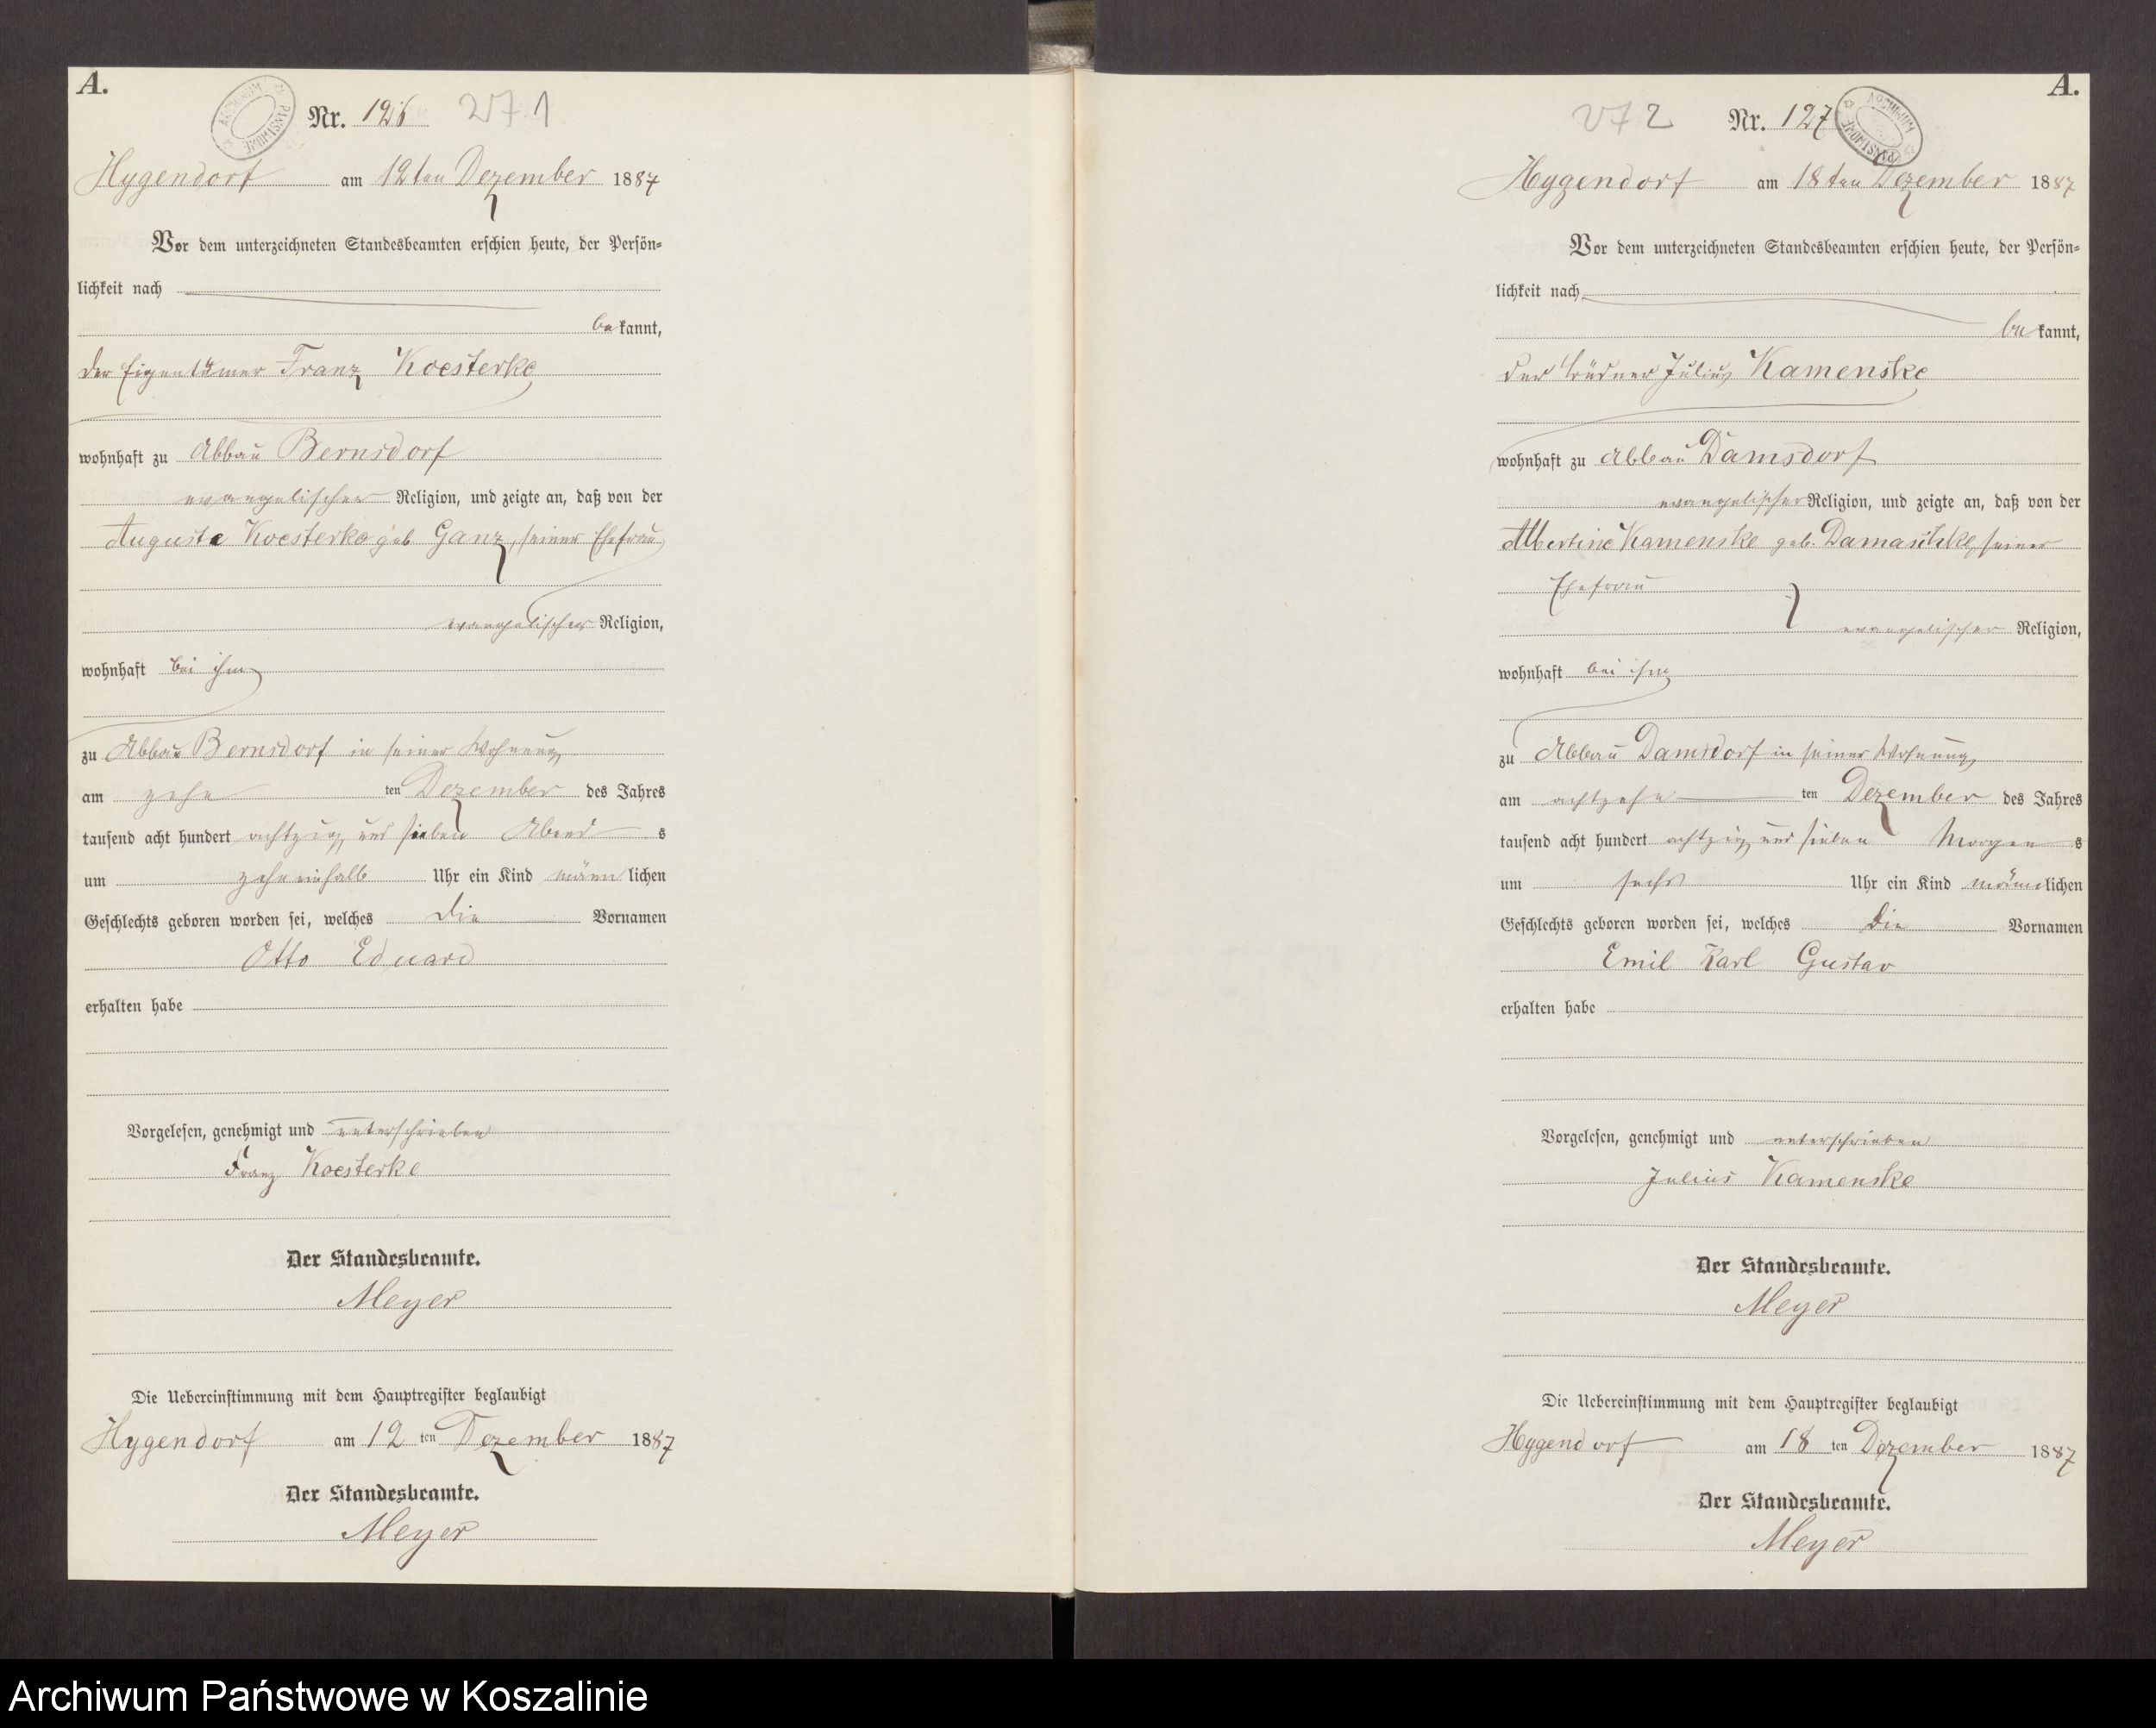 A.
ARCHIWUM PAŃSTWOWE
Nr. 126 271
Hygendorf am 12ten Dezember 1887
Vor dem unterzeichneten Standesbeamten erschien heute, der Persön=
lichkeit nach
bekannt,
der Eigentümer Franz Koesterke
wohnhaft zu Abbau Bernsdorf
evangelischer Religion, und zeigte an, daß von der
Auguste Koesterke geb. Ganz, seiner Ehefrau
evangelischer Religion,
wohnhaft bei ihm
zu Abbau Bernsdorf in seiner Wohnung
am zehn ten Dezember des Jahres
tausend acht hundert achtzig und sieben Abends
um zehn einhalb Uhr ein Kind männlichen
Geschlechts geboren worden sei, welches die Vornamen
Otto Eduard
erhalten habe
Vorgelesen, genehmigt und unterschrieben
Franz Koesterke
Der Standesbeamte.
Meyer
Die Uebereinstimmung mit dem Hauptregister beglaubigt
Hygendorf am 12 ten Dezember 1887
Der Standesbeamte.
Meyer
A.
272 Nr. 127
ARCHIWUM PAŃSTWOWE
Hygendorf am 18ten Dezember 1887
Vor dem unterzeichneten Standesbeamten erschien heute, der Persön=
lichkeit nach
bekannt,
der Büdner Julius Kamenske
wohnhaft zu Abbau Damsdorf
evangelischer Religion, und zeigte an, daß von der
Albertine Kamenske geb. Damaschke, seiner
Ehefrau
evangelischer Religion,
wohnhaft bei ihm
zu Abbau Damsdorf in seiner Wohnung
am achtzehn ten Dezember des Jahres
tausend acht hundert achtzig und sieben Morgens
um sechs Uhr ein Kind männlichen
Geschlechts geboren worden sei, welches die Vornamen
Emil Karl Gustav
erhalten habe
Vorgelesen, genehmigt und unterschrieben
Julius Kamenske
Der Standesbeamte.
Meyer
Die Uebereinstimmung mit dem Hauptregister beglaubigt
Hygendorf am 18 ten Dezember 1887
Der Standesbeamte.
Meyer
Archiwum Państwowe w Koszalinie